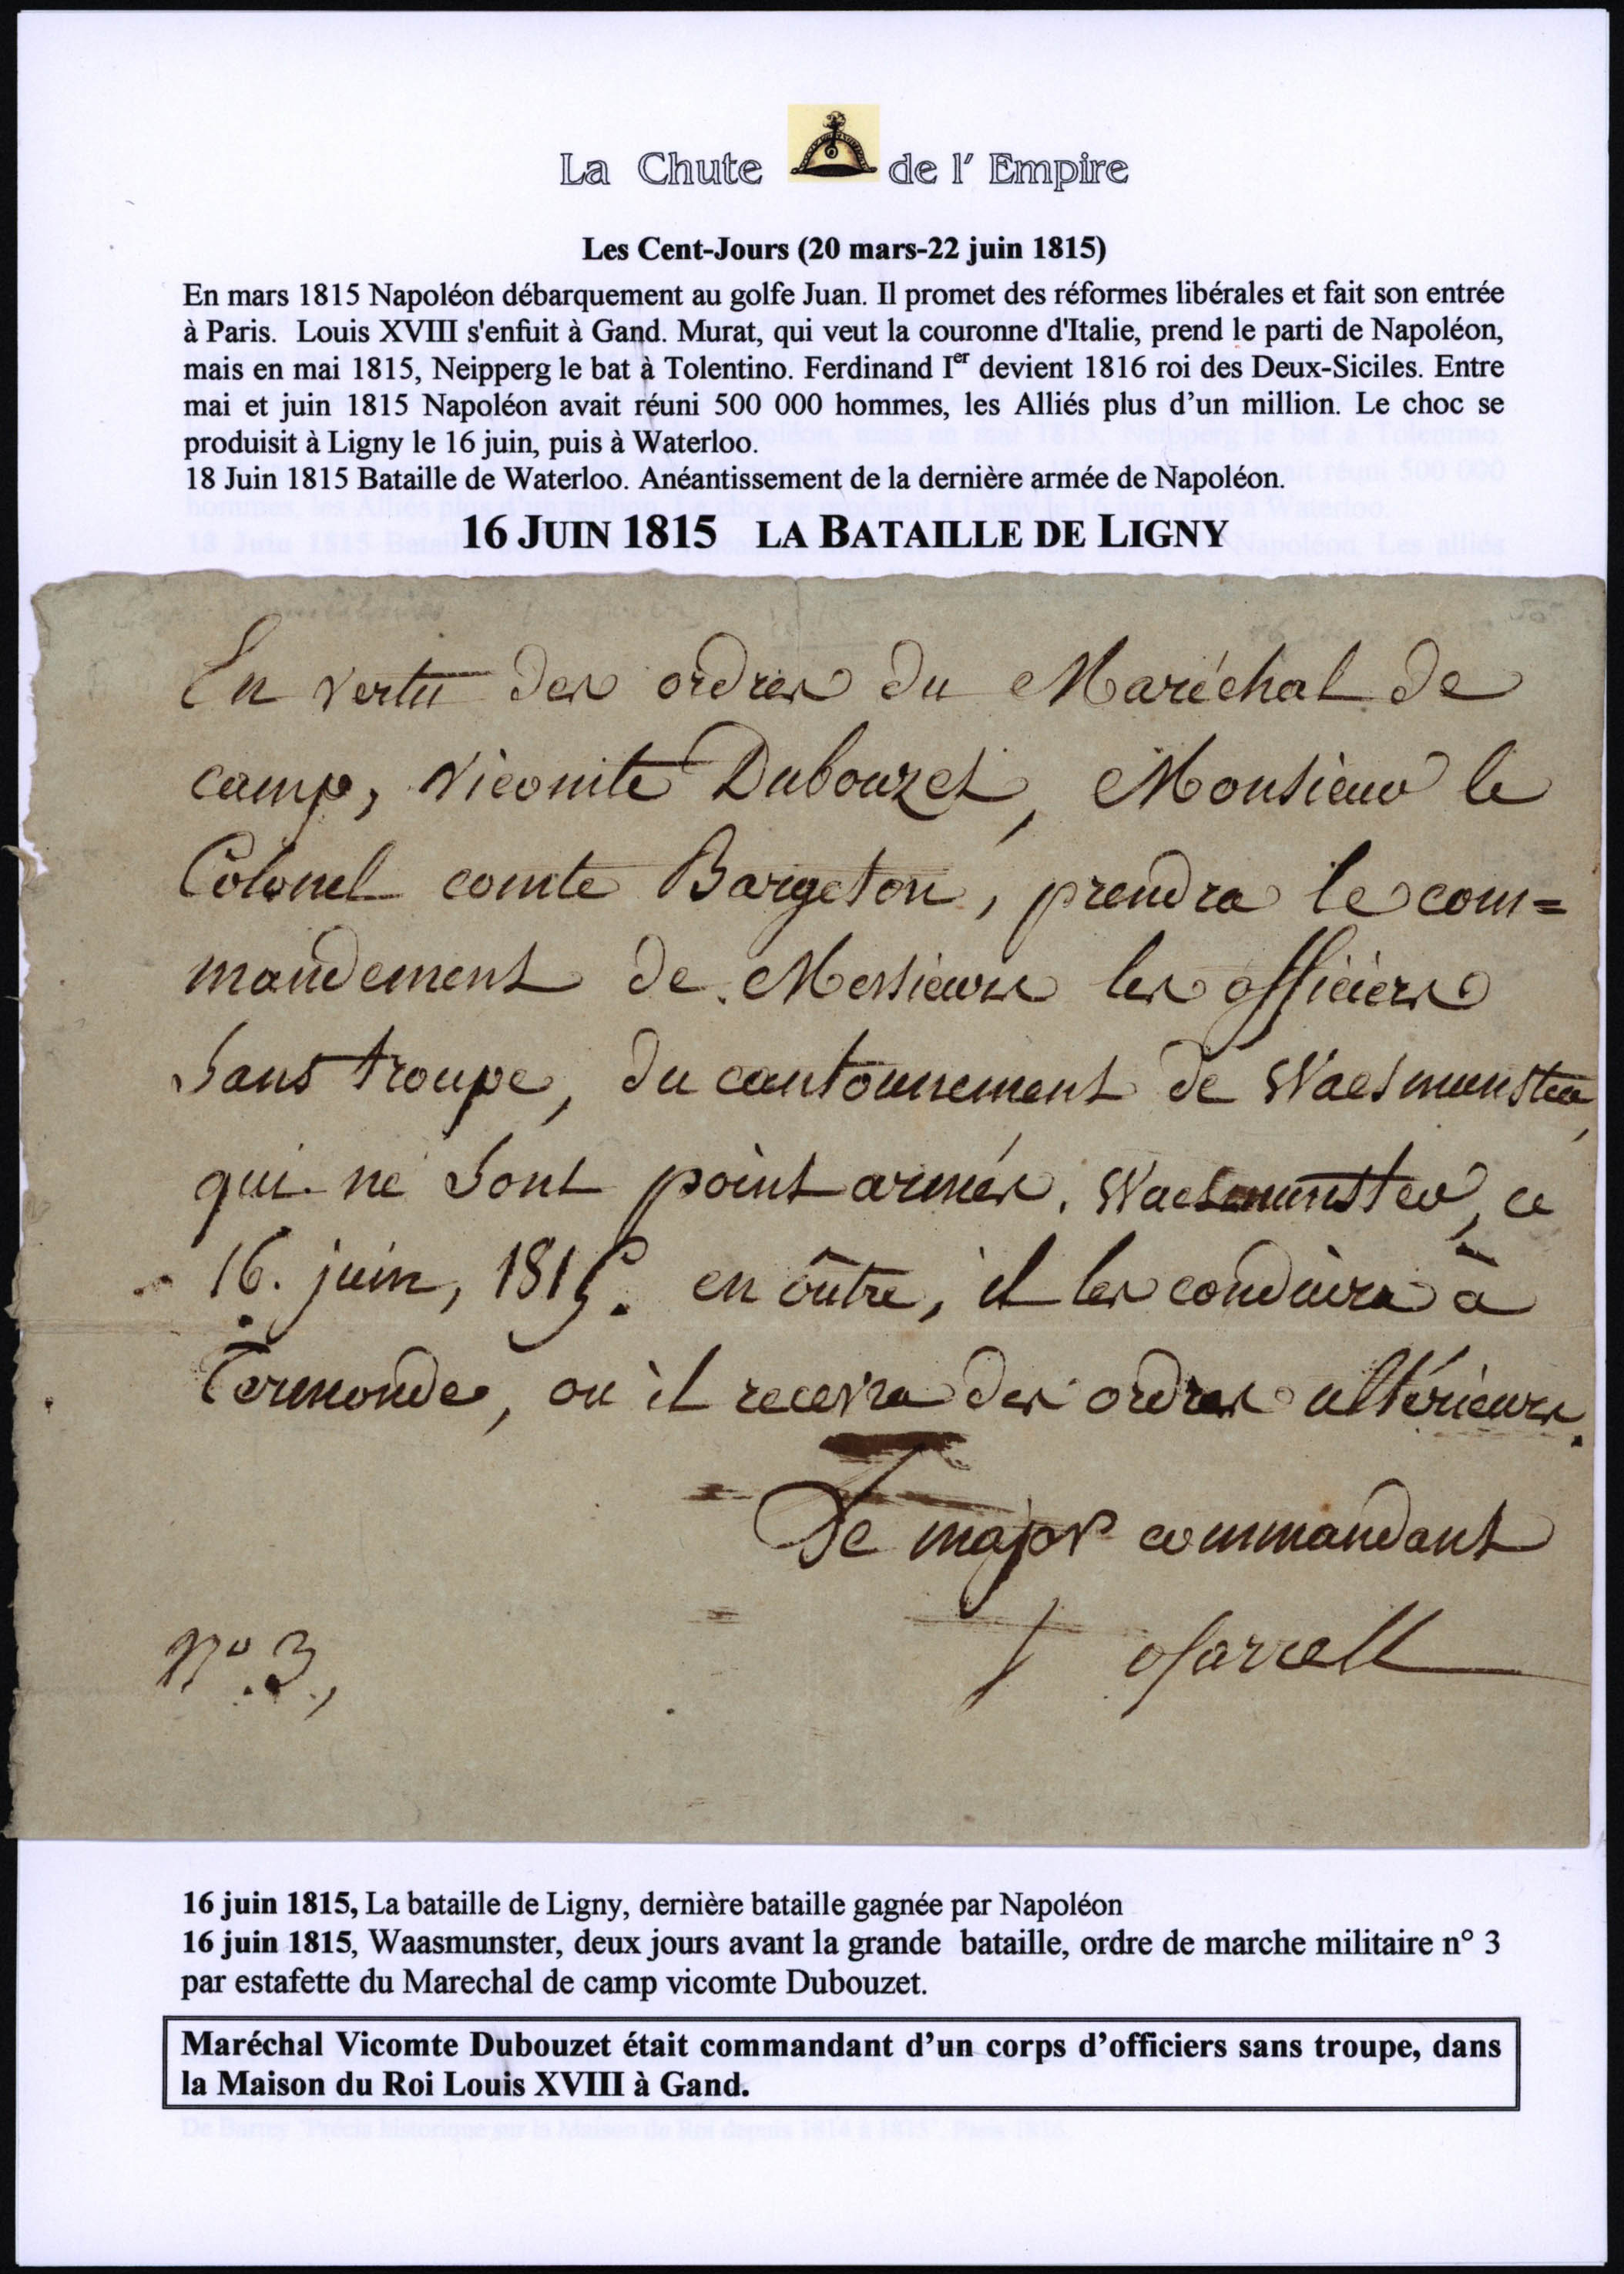 La Chute de l' Empire
Les Cent-Jours (20 mars-22 juin 1815)
En mars 1815 Napoléon débarquement au golfe Juan. Il promet des réformes libérales et fait son entrée
à Paris. Louis XVIII s'enfuit à Gand. Murat, qui veut la couronne d'Italie, prend le parti de Napoléon,
mais en mai 1815, Neipperg le bat à Tolentino. Ferdinand Ier devient 1816 roi des Deux-Siciles. Entre
mai et juin 1815 Napoléon avait réuni 500 000 hommes, les Alliés plus d’un million. Le choc se
produisit à Ligny le 16 juin, puis à Waterloo.
18 Juin 1815 Bataille de Waterloo. Anéantissement de la dernière armée de Napoléon.
16 JUIN 1815 LA BATAILLE DE LIGNY
En vertu des ordres du Maréchal de
camp, vicomte Dubouzet, Monsieur le
Colonel comte Bargeton, prendra le com=
mandement de Messieurs les officiers
Sans troupe, du cantonnement de Waesmunster,
qui ne Sont point armés. Waesmunster, ce
16. juin, 1815. en outre, il les conduira à
Termonde, ou il recevra des ordres ultérieurs.
Le major commandant
ofarrell
No. 3,
16 juin 1815, La bataille de Ligny, dernière bataille gagnée par Napoléon
16 juin 1815, Waasmunster, deux jours avant la grande bataille, ordre de marche militaire n° 3
par estafette du Marechal de camp vicomte Dubouzet.
Maréchal Vicomte Dubouzet était commandant d’un corps d’officiers sans troupe, dans
la Maison du Roi Louis XVIII à Gand.